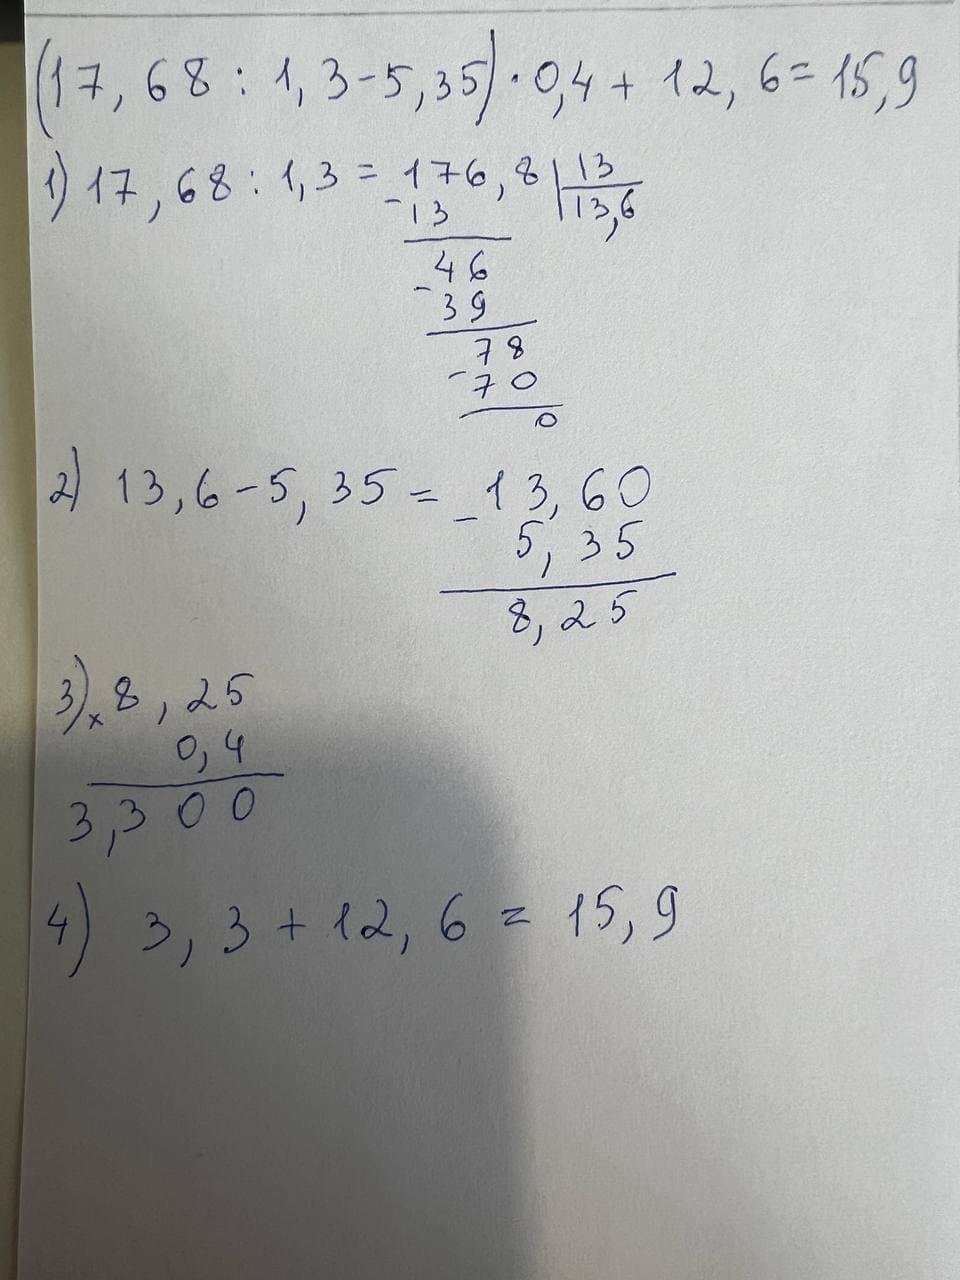 (17,68 : 1,3 - 5,35) · 0,4 + 12,6 = 15,9
1) 17,68 : 1,3 = 176,8 | 13
- 13 13,6
46
- 39
78
- 70
0
2) 13,6 - 5,35 = - 13,60
5,35
8,25
3) x 8,25
0,4
3,300
4) 3,3 + 12,6 = 15,9